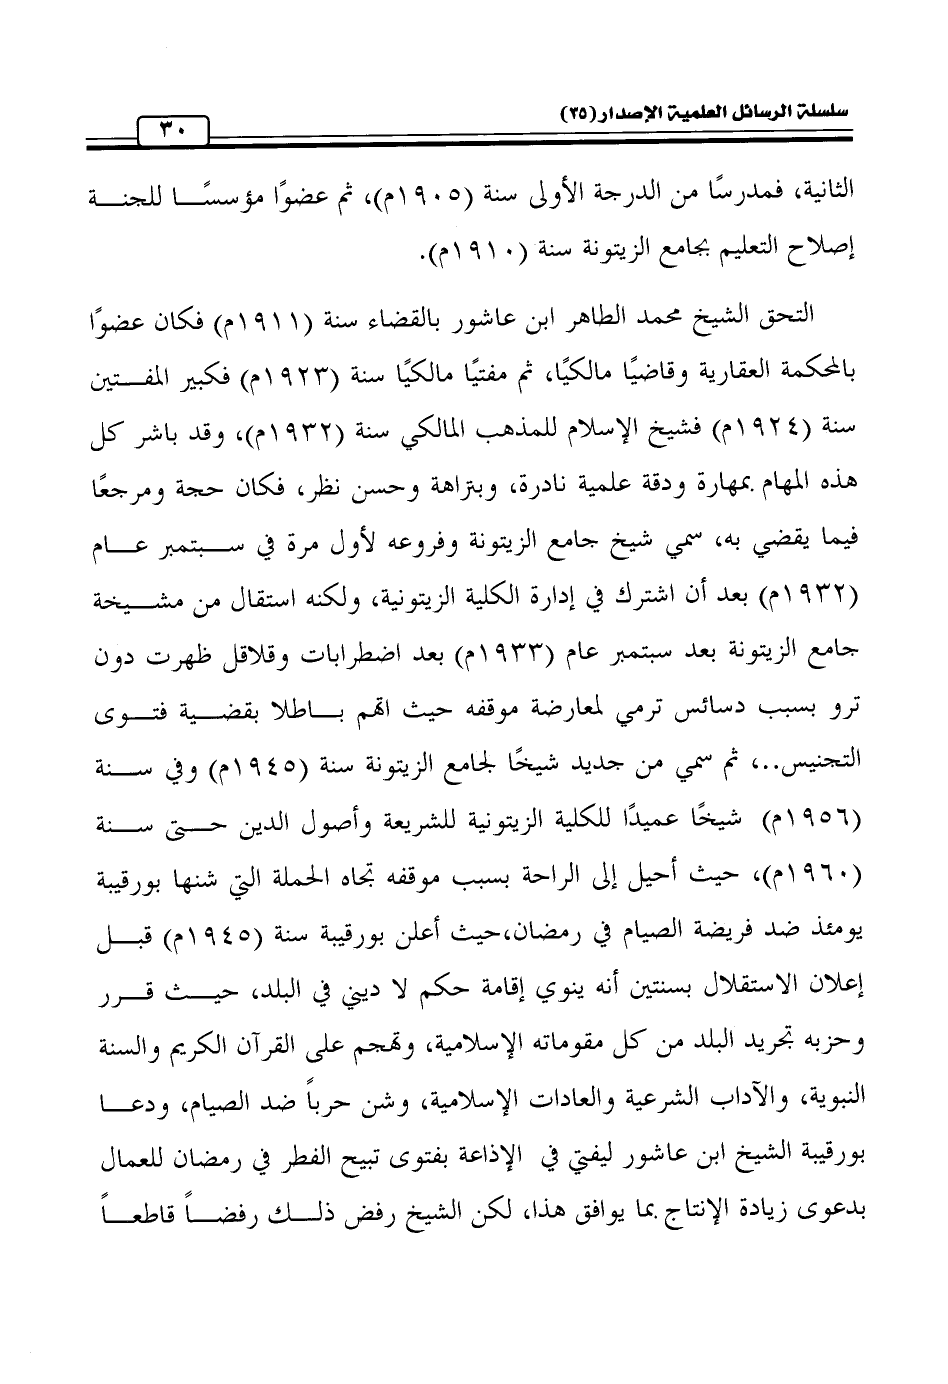 سلسلة الرسائل العلمية الإصدار (٣٥)
٣٠
الثانية، فمدرسًا من الدرجة الأولى سنة (١٩٠٥م)، ثم عضوًا مؤسسًا للجنة
إصلاح التعليم بجامع الزيتونة سنة (١٩١٠م).
التحق الشيخ محمد الطاهر ابن عاشور بالقضاء سنة (١٩١١م) فكان عضوًا
بالمحكمة العقارية وقاضيًا مالكيًا، ثم مفتيًا مالكيًا سنة (١٩٢٣م) فكبير المفتين
سنة (١٩٢٤م) فشيخ الإسلام للمذهب المالكي سنة (١٩٣٢م)، وقد باشر كل
هذه المهام بمهارة ودقة علمية نادرة، وبنزاهة وحسن نظر، فكان حجة ومرجعًا
فيما يقضي به، سمي شيخ جامع الزيتونة وفروعه لأول مرة في سبتمبر عام
(١٩٣٢م) بعد أن اشترك في إدارة الكلية الزيتونية، ولكنه استقال من مشيخة
جامع الزيتونة بعد سبتمبر عام (١٩٣٣م) بعد اضطرابات وقلاقل ظهرت دون
ترو بسبب دسائس ترمي لمعارضة موقفه حيث اتهم باطلا بقضية فتوى
التجنيس..، ثم سمي من جديد شيخًا لجامع الزيتونة سنة (١٩٤٥م) وفي سنة
(١٩٥٦م) شيخًا عميدًا للكلية الزيتونية للشريعة وأصول الدين حتى سنة
(١٩٦٠م)، حيث أحيل إلى الراحة بسبب موقفه تجاه الحملة التي شنها بورقيبة
يومئذ ضد فريضة الصيام في رمضان،حيث أعلن بورقيبة سنة (١٩٤٥م) قبل
إعلان الاستقلال بسنتين أنه ينوي إقامة حكم لا ديني في البلد، حيث قرر
وحزبه تجريد البلد من كل مقوماته الإسلامية، وتهجم على القرآن الكريم والسنة
النبوية، والآداب الشرعية والعادات الإسلامية، وشن حرباً ضد الصيام، ودعا
بورقيبة الشيخ ابن عاشور ليفتي في الإذاعة بفتوى تبيح الفطر في رمضان للعمال
بدعوى زيادة الإنتاج بما يوافق هذا، لكن الشيخ رفض ذلك رفضاً قاطعاً